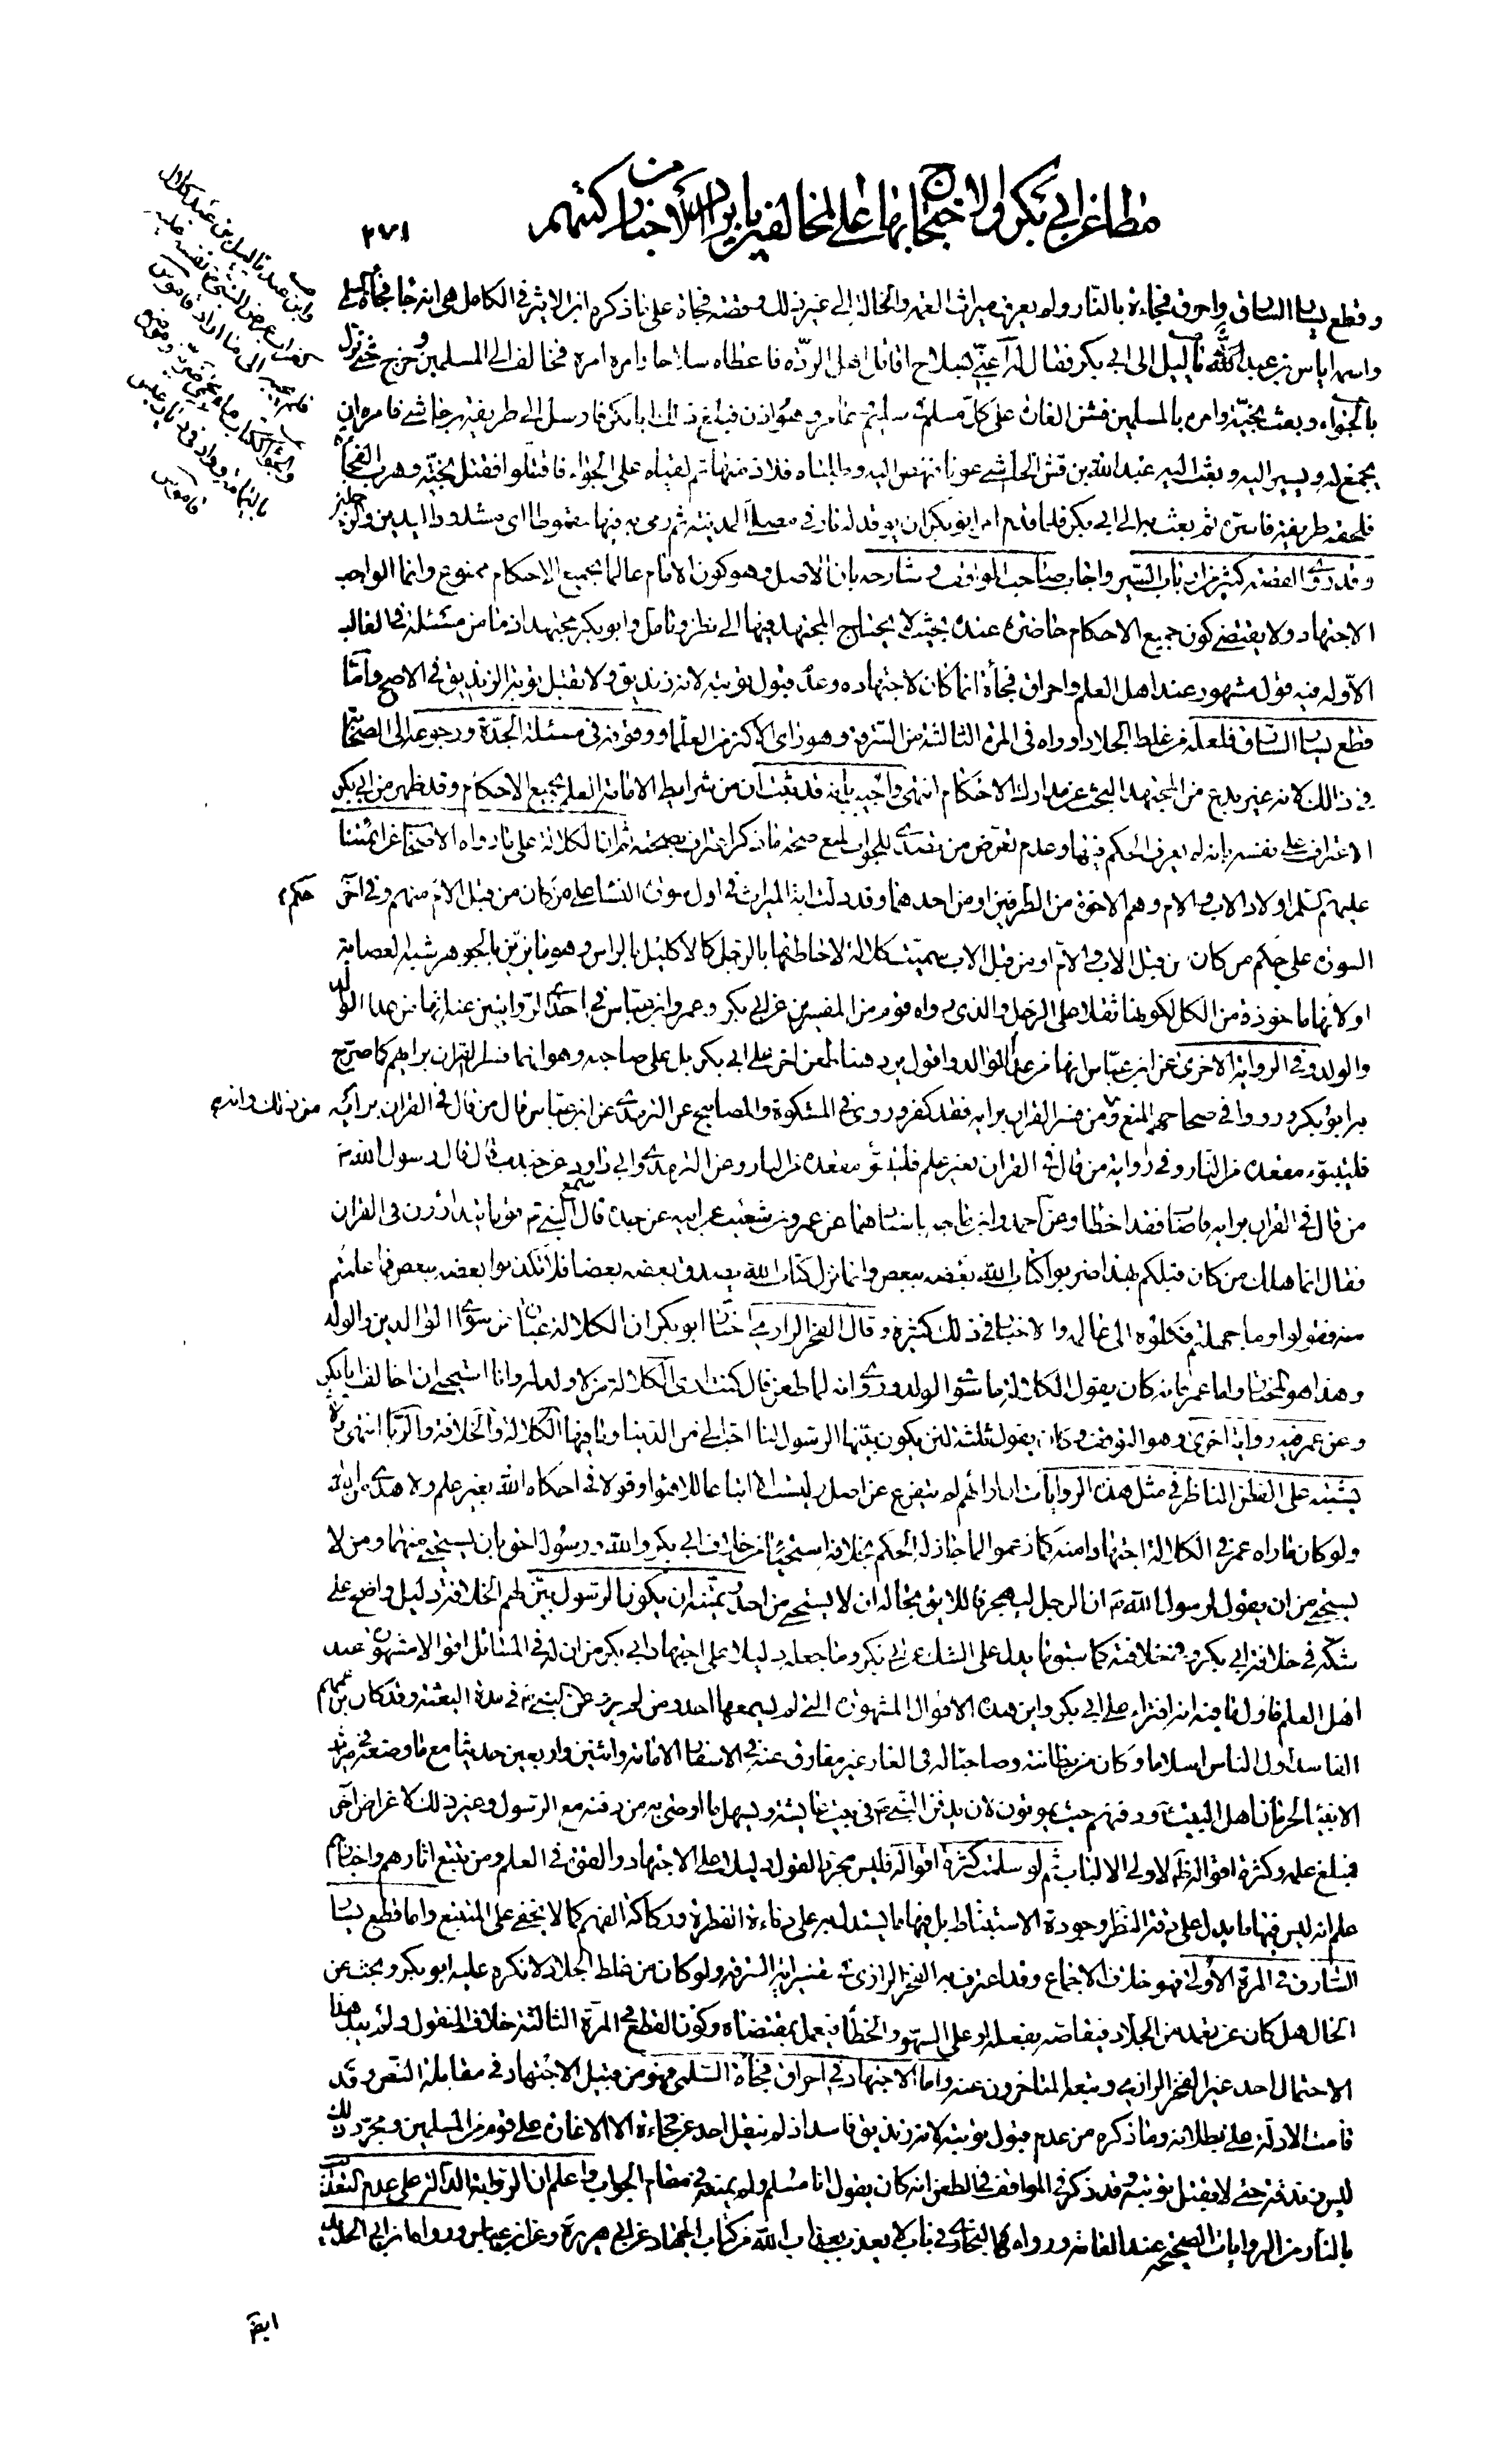 مطاعن ابي بكر والاحتجاج بها على المخالفين بايراد الاخبار من كتبهم
٢٧١
وقطع يسار السارق واحرق فجاءة بالنار ولم يعرف ميراث العمة والخالة الى غير ذلك وقصة فجاءة على ما ذكره ابن الاثير في الكامل هي انه جاء فجاءة السلمي
واسمه اياس بن عبد الله يا ليل الى ابي بكر فقال له اعنّي بسلاح اقاتل اهل الردّة فاعطاه سلاحا وامره امره فخالف الى المسلمين وخرج حتى نزل
بالجواء وبعث نجبة وامره بالمسلمين فشن الغارة على كل مسلم في سليم وعامر وهوازن فبلغ ذلك ابا بكر فارسل الى طريفة بن حاشي فامره ان
يجمع له ويسير اليه وبعث اليه عبد الله بن قيس الحاشي عونا فنهضا اليه وطلباه فلاذ منهما ثم لقياه على الجواء فاقتتلوا فقتل نجبة وهرب الفجاءة
فلحقه طريفة فاسره ثم بعث به الى ابي بكر فلما قدم امر ابو بكر ان يوقد له نار في مصلى المدينة ثم رمي به فيها مقموطا اي مشدود اليدين والرجلين
وقد روى القصة كثير من ارباب السير واجاب صاحب المواقف وشارحه بان الاصل وهو كون الامام عالما بجميع الاحكام ممنوع وانما الواجب
الاجتهاد ولا يقتضي كون جميع الاحكام حاضرة عنده بحيث لا يحتاج المجتهد فيها الى نظر وتامل وابو بكر مجتهد اذ ما من مسئلة في الغالب
الا وله فيه قول مشهور عند اهل العلم واحراق فجأة انما كان لاجتهاده وعدم قبول توبته لانه زنديق ولا تقبل توبة الزنديق في الاصح واما
قطع يسار السارق فلعله من غلط الجلاد او رآه في المرة الثالثة من السرقة وهو راي الاكثر من العلماء ووقوفه في مسئلة الجدة ورجوعه الى الصحابة
في ذلك لانه غير بدع من المجتهد البحث عن مدارك الاحكام انتهى واجيب بانه قد ثبت ان من شرايط الامامة العلم بجميع الاحكام وقد ظهر من ابي بكر
الاعتراف على نفسه بانه لم يعرف الحكم فيها وعدم تعرض من تصدى للجواب لمنع صحة ما ذكر اعتراف بصحته ثم ان الكلالة على ما رواه الاصحاب عن ائمتنا
عليهم السلم اولاد الاب والام وهم الاخوة من الطرفين او من احدهما وقد دلت اية الميراث في اول سورة النساء على من كان من قبل الام منهم وفي اخر
حكم
السورة على حكم من كان من قبل الاب والام او من قبل الاب سميت كلالة لاحاطتها بالرجل كالاكليل بالراس وهو ما يزين بالجوهر شبه العصابة
او لانها ماخوذة من الكل لكونها ثقلا على الرجل والذي رواه قوم من المفسرين عن ابي بكر وعمر وابن عباس في احدى الروايتين عنه انها من عدا الوالد
والولد وفي الرواية الاخرى عن ابن عباس انها من عدا الوالد واقول يرد هنا طعن اخر على ابي بكر بل على صاحبه وهو انهما فسرا القران برايهم كما صرح
به ابو بكر ورووا في صحاحهم المنع من ذلك وانه من فسر القران برايه فقد كفر وروى في المشكوة والمصابيح عن الترمذي عن ابن عباس قال من قال في القران برايه
فليتبوء مقعده من النار وفي رواية من قال في القران بغير علم فليتبوّء مقعده من النار وعن الترمذي وابي داود عن جندب قال قال رسول الله ص
من قال في القران برايه فاصاب فقد اخطا وعن احمد وابن ماجه باسنادهما عن عمرو بن شعيب عن ابيه عن جده قال سمع النبي ص قوما يتدارؤن في القران
فقال انما هلك من كان قبلكم بهذا ضربوا كتاب الله بعضه ببعض وانما نزل كتاب الله يصدق بعضه بعضا فلا تكذبوا بعضه ببعض فما علمتم
منه فقولوا وما جهلتم فكلوه الى عالمه والاخبار في ذلك كثيرة وقال الفخر الرازي اختار ابو بكر ان الكلالة عبارة عن سوى الوالدين والولد
وهذا هو المختار واما عمر فانه كان يقول الكلالة ما سوى الولد وروي انه لما طعن قال كنت ارى الكلالة من لا ولد له وانا استحيي ان اخالف ابا بكر
وعن عمر فيه رواية اخرى وهو التوقف وكان يقول ثلثة لئن يكون بينها الرسول لنا احب الي من الدنيا وما فيها الكلالة والخلافة والربا انتهى ولا
يشتبه على الفطن الناظر في مثل هذه الروايات ان آرائهم لم يتفرع عن اصل وليست الا اتباعا للاهواء وقولا في احكام الله بغير علم ولا هدى من الله
ولو كان ما رآه عمر في الكلالة اجتهادا منه كما زعموا لما جاز له الحكم بخلافه استحياء من خلاف ابي بكر والله ورسوله احق بان يستحيى منهما ومن لا
يستحيي من ان يقول لرسول الله ص ان الرجل ليهجر فاللايق بحاله ان لا يستحيي من احد وتمنيه ان يكون الرسول بيّن لهم الخلافة دليل واضح على
شكه في خلافة ابي بكر وفي خلافته كما سبق ما يدل على الشك عن ابي بكر وما جعله دليلا على اجتهاد ابي بكر من ان له في المسائل اقوالا مشهورة عند
اهل العلم فاول ما فيه انه افتراء على ابي بكر واين هذه الاقوال المشهورة التي لم يسمعها احد ومن لم يرو عن النبي ص في مدة البعثة وقد كان بزعمهم
الفاسد اول الناس اسلاما وكان من بطانته وصاحبا له في الغار غير مفارق عنه في الاسفار الا مائة واثنين واربعين حديثا مع ما وضعه في ميراث
الانبياء لحرمان اهل البيت ودفنهم حيث يموتون لان يدفن النبي ص في بيت عايشة ويسهل ما اوصى به من دفنه مع الرسول وغير ذلك لاغراض اخر
فمبلغ علمه وكثرة اقواله ظهر لاولي الالباب ثم لو سلمت كثرة اقواله فليس مجرد القول دليلا على الاجتهاد والقوة في العلم ومن تتبع اثارهم واخبارهم
علم انه ليس فيها ما يدل على دقة النظر وجودة الاستنباط بل فيها ما يستدل به على دناءة الفطرة وركاكة الفهم كما لا يخفى على المتتبع واما قطع يسار
السارق في المرة الاولى فهو خلاف الاجماع وقد اعترف به الفخر الرازي في تفسير اية السرقة ولو كان من غلط الجلاد لانكره عليه ابو بكر وبحث عن
الحال هل كان عن تعمد من الجلاد فيقاصه بفعله او على السهو والخطأ فيعمل بمقتضاه وكون القطع في المرة الثالثة خلاف المنقول ولم يبد هذا
الاحتمال احد غير الفخر الرازي وتبعه المتاخرون عنه واما الاجتهاد في احراق فجأة السلمي فهو من قبيل الاجتهاد في مقابلة النص وقد
قامت الادلة على بطلانه وما ذكره من عدم قبول توبته لانه زنديق فاسد اذ لم ينقل احد عن فجاءة الا الاغارة على قوم من المسلمين ومجرد ذلك
ليس زندقة حتى لا تقبل توبته وقد ذكر في المواقف في الطعن انه كان يقول انا مسلم ولم يمنعه في مقام الجواب واعلم ان الرواية الدالة على عدم التعذيب
بالنار من الروايات الصحيحة عند العامة ورواه البخاري في باب لا يعذب بعذاب الله من كتاب الجهاد عن ابي هريرة وعن ابن عباس ورواها ابن ابي الحديد
ايضا